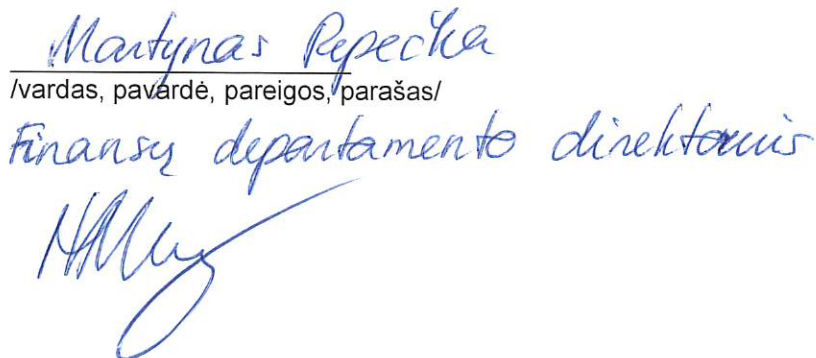 Martynas Pepečka
/vardas, pavardė, pareigos, parašas/
Finansų departamento direktorius